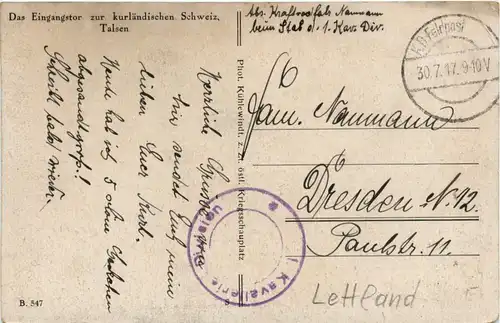 Das Eingangstor zur kurländischen Schweiz,
Talsen.
Abs. Kraftradfahr. Naumann
beim Stab d. 1. Kav. Div.
K.D. Feldpost
30.7.17. 9-10V
Herzliche Grüße
hier sendet Euch mein
lieben Euer Kurt.
Heute hab ich 5
abgesandt
Schreibt bald wieder.
Phot. Kühlewindt, z. Zt. östl. Kriegsschauplatz
Fam. Naumann
Dresden N. 12
Paulstr. 11.
Kavallerie Division
Lettland
B. 547